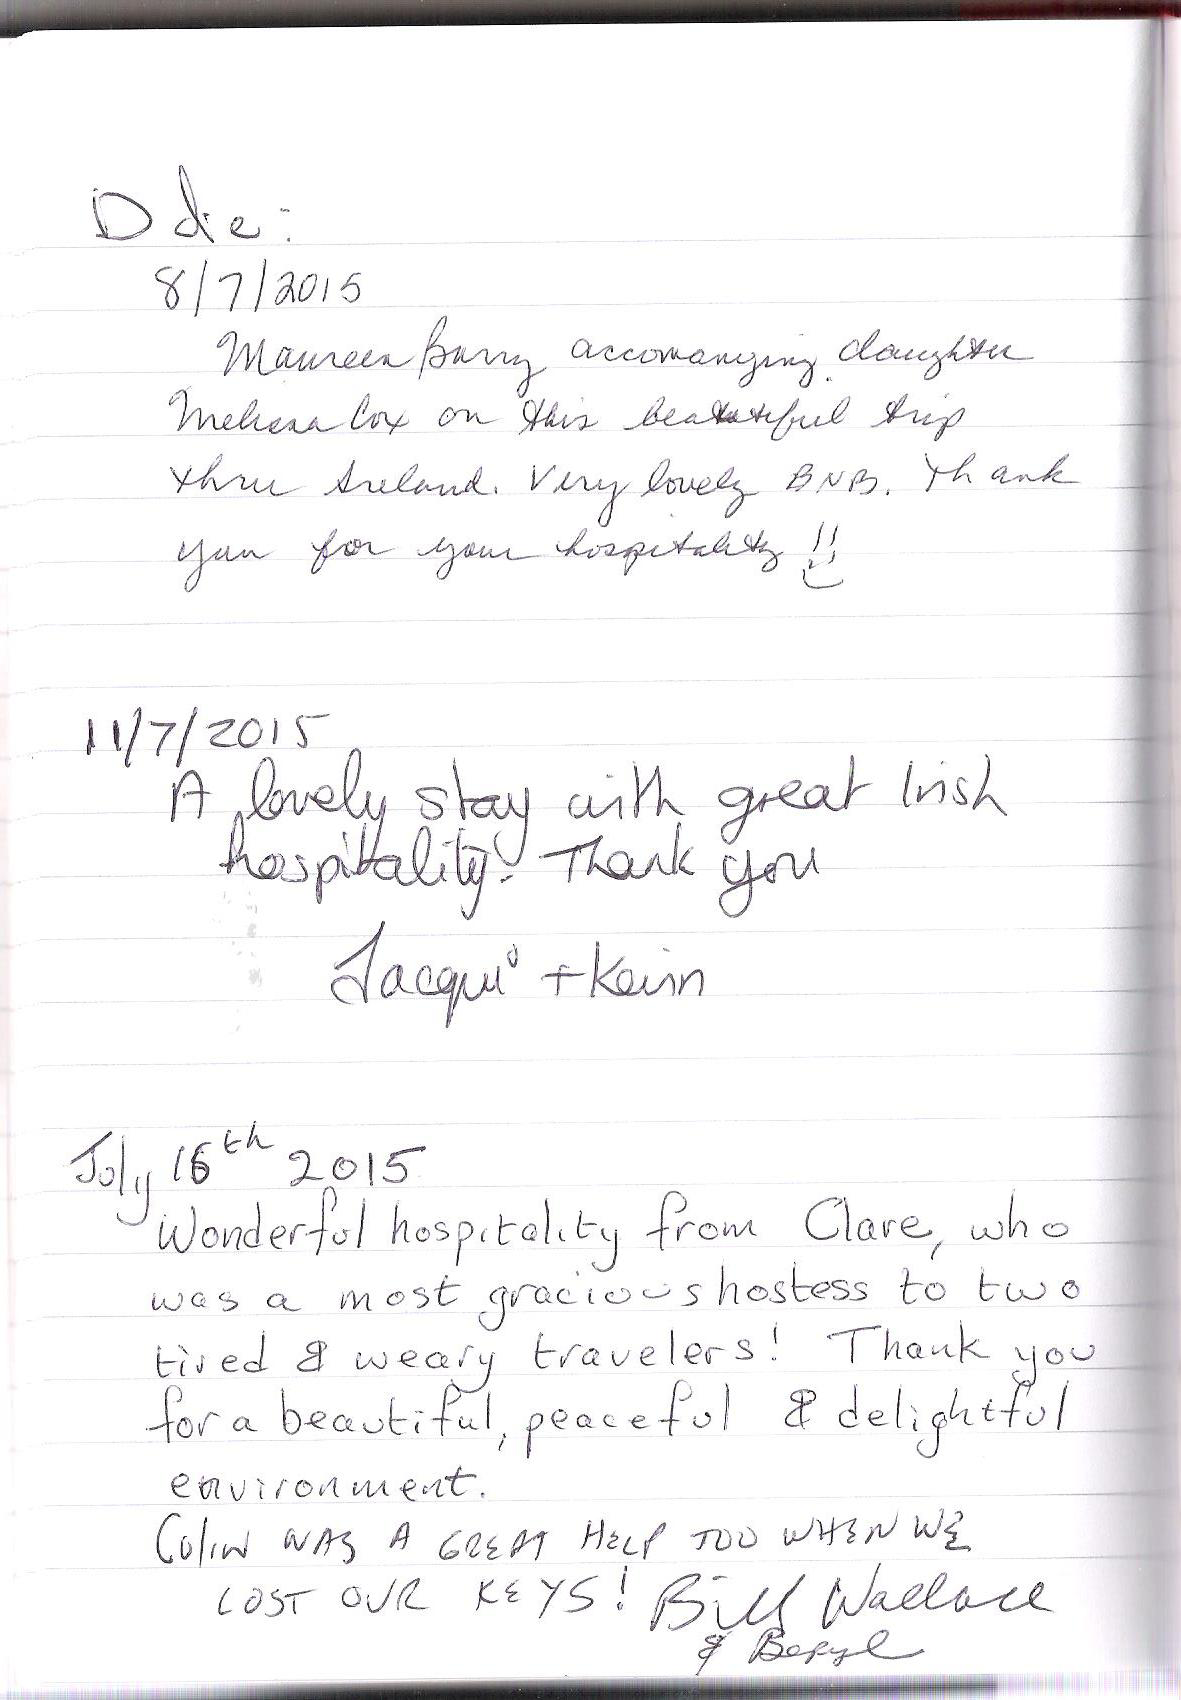 Date:
8/7/2015
Maureen Barry accomanying daughter
Melissa Cox on this beautiful trip
thru Ireland. Very lovely BNB. Thank
you for your hospitality!!
11/7/2015
A lovely stay with great Irish
hospitality! Thank you
Jacqui + Kevin
July 16th 2015
Wonderful hospitality from Clare, who
was a most gracious hostess to two
tired & weary travelers! Thank you
for a beautiful, peaceful & delightful
environment.
Colin WAS A GREAT HELP TOO WHEN WE
LOST OUR KEYS! Bill Wallace
& Beryl